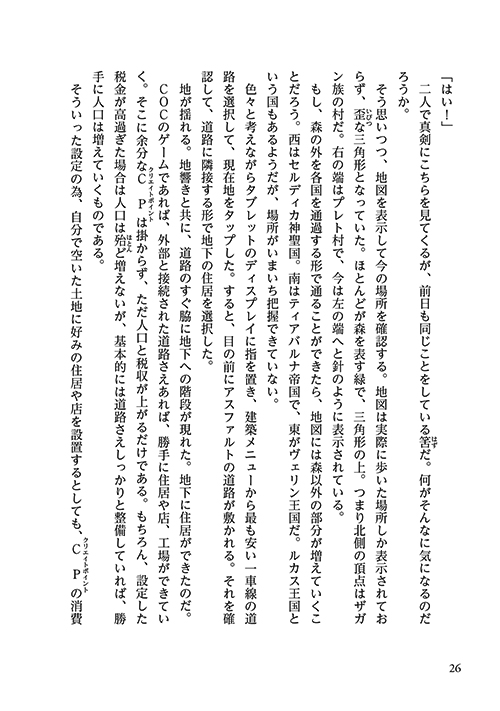 「はい！」
　二人で真剣にこちらを見てくるが、前日も同じことをしている筈だ。何がそんなに気になるのだ
ろうか。
　そう思いつつ、地図を表示して今の場所を確認する。地図は実際に歩いた場所しか表示されてお
らず、歪な三角形となっていた。ほとんどが森を表す緑で、三角形の上。つまり北側の頂点はザガ
ン族の村だ。右の端はプレト村で、今は左の端へと針のように表示されている。
　もし、森の外を各国を通過する形で通ることができたら、地図には森以外の部分が増えていくこ
とだろう。西はセルディカ神聖国。南はティアバルナ帝国で、東がヴェリン王国だ。ルカス王国と
いう国もあるようだが、場所がいまいち把握できていない。
　色々と考えながらタブレットのディスプレイに指を置き、建築メニューから最も安い一車線の道
路を選択して、現在地をタップした。すると、目の前にアスファルトの道路が敷かれる。それを確
認して、道路に隣接する形で地下の住居を選択した。
　地が揺れる。地響きと共に、道路のすぐ脇に地下への階段が現れた。地下に住居ができたのだ。
　ＣＯＣのゲームであれば、外部と接続された道路さえあれば、勝手に住居や店、工場ができてい
く。そこに余分なＣＰは掛からず、ただ人口と税収が上がるだけである。もちろん、設定した
税金が高過ぎた場合は人口は殆ど増えないが、基本的には道路さえしっかりと整備していれば、勝
手に人口は増えていくものである。
　そういった設定の為、自分で空いた土地に好みの住居や店を設置するとしても、ＣＰの消費
はず
いびつ
クリエイトポイント
ほとん
クリエイトポイント
26